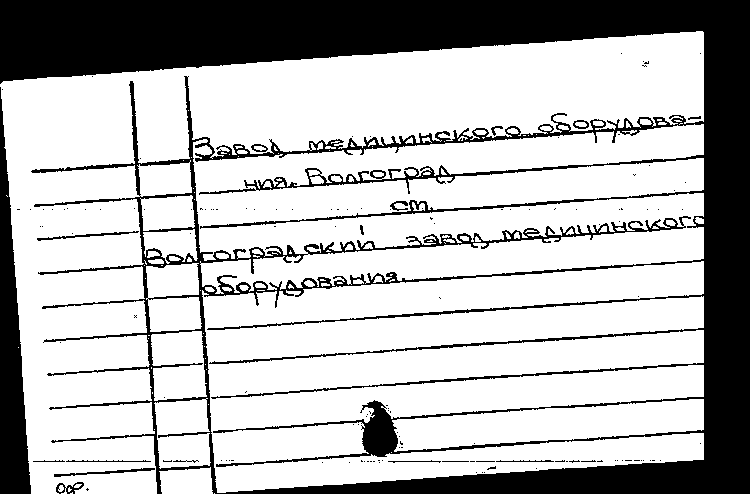 Завод медицинского оборудова-
ния. Волгоград
см.
Волгоградский завод медицинского
оборудования.